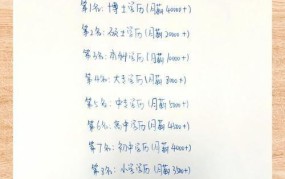 第1名:博士学历(月薪40000+)
第2名:硕士学历(月薪20000+)
第3名:本科学历(月薪10000+)
第4名:大专学历(月薪8000+)
第5名:中专学历(月薪5000+)
第6名:高中学历(月薪4500+)
第7名:初中学历(月薪4000+)
第8名:小学学历(月薪3500+)